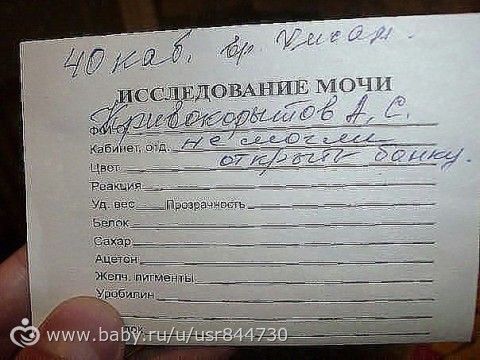 40 каб. вр. Уисам.
ИССЛЕДОВАНИЕ МОЧИ
Ф.И.О. Кривокорытов А. С.
Кабинет, отд. не могли
Цвет открыть банку.
Реакция
Уд. вес Прозрачность
Белок
Сахар
Ацетон
Желч. пигменты
Уробилин
www.baby.ru/u/usr844730